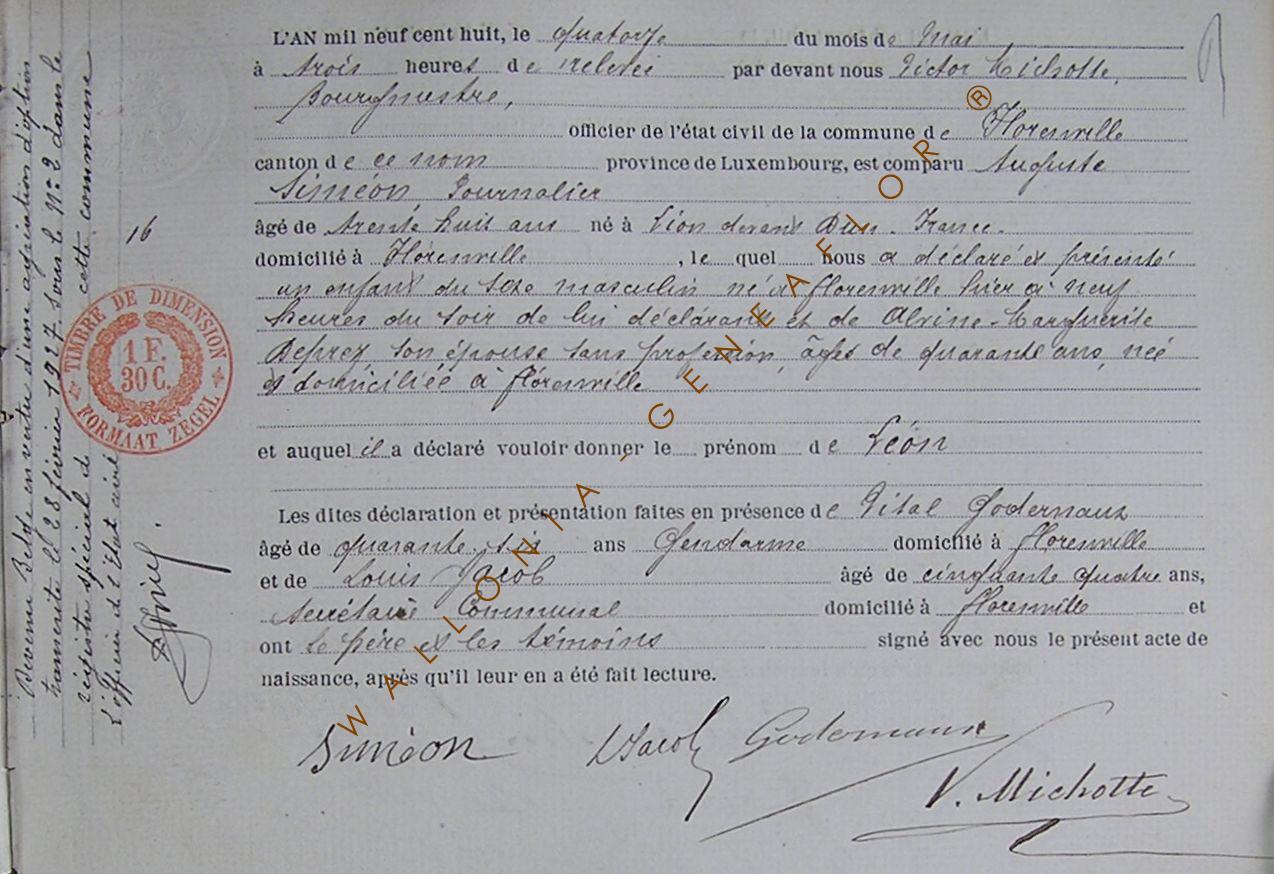 L'AN mil neuf cent huit, le quatorze du mois de Mai
à trois heures de relevée par devant nous Victor Michotte,
Bourgmestre,
officier de l'état civil de la commune de Florenville
canton de ce nom province de Luxembourg, est comparu Auguste
Siméon, Journalier
âgé de trente huit ans né à Lion devant Dun - France -
domicilié à Florenville, lequel nous a déclaré et présenté
un enfant du sexe masculin né à Florenville hier à neuf
heures du soir de lui déclarant et de Alvine-Marguerite
Deprez, son épouse sans profession, âgée de quarante ans, née
et domiciliée à Florenville
et auquel il a déclaré vouloir donner le prénom de Léon
Les dites déclaration et présentation faites en présence de Vital Godernaux
âgé de quarante six ans Gendarme domicilié à Florenville
et de Louis Jacob âgé de cinquante quatre ans,
Secrétaire Communal domicilié à Florenville et
ont le père et les témoins signé avec nous le présent acte de
naissance, après qu'il leur en a été fait lecture.
Siméon LJacob Godernaux
V. Michotte
16
Devenu Belge en vertu d'une déclaration d'option
transcrite le 28 février 1927 sous le N° 2 dans le
registre spécial de cette commune
L'officier de l'Etat civil
TIMBRE DE DIMENSION
1 F.
30 C.
FORMAAT ZEGEL
WALLONIA-GENEAFLOR®